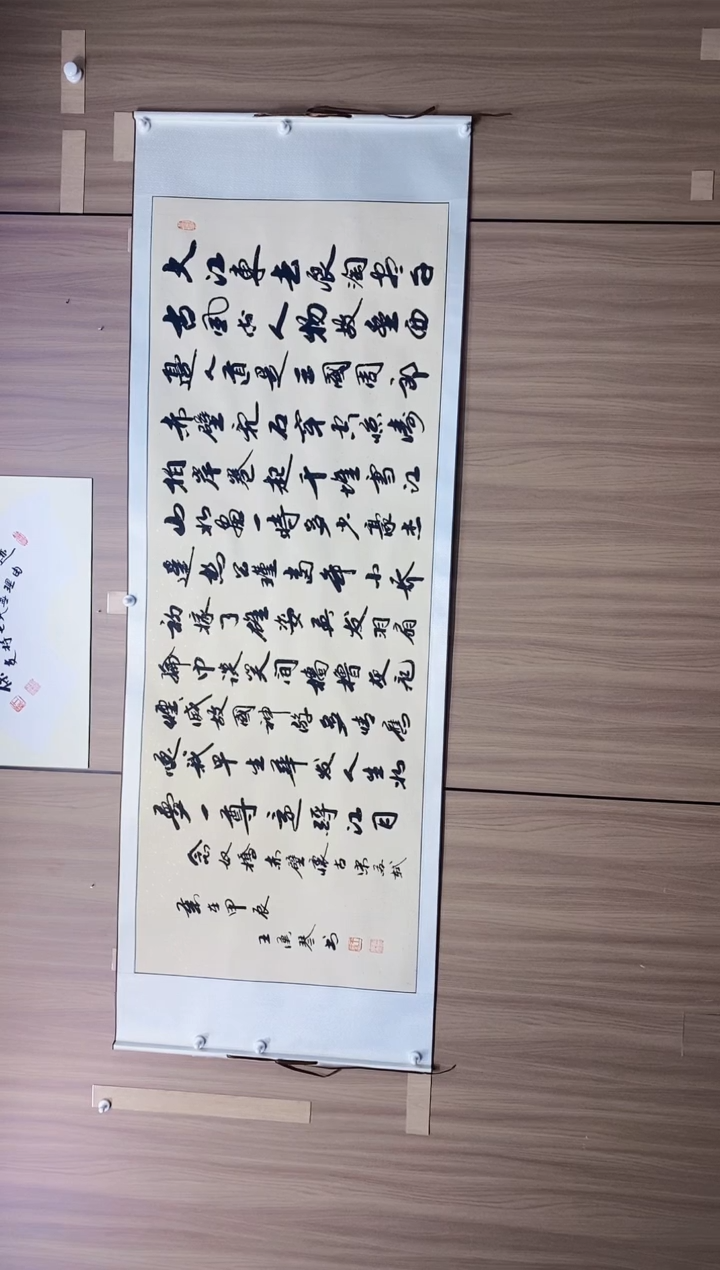 大江東去浪淘尽千
古風流人物故壘西
邊人道是三國周郎
赤壁乱石穿空惊濤
拍岸卷起千堆雪江
山如畫一時多少豪杰
遥想公瑾當年小喬
初嫁了雄姿英发羽扇
綸巾談笑間檣櫓灰飛
煙滅故國神游多情應
笑我早生華发人生如
夢一尊還酹江月
念奴嬌赤壁懷古宋蘇軾
歲在甲辰
王琴书